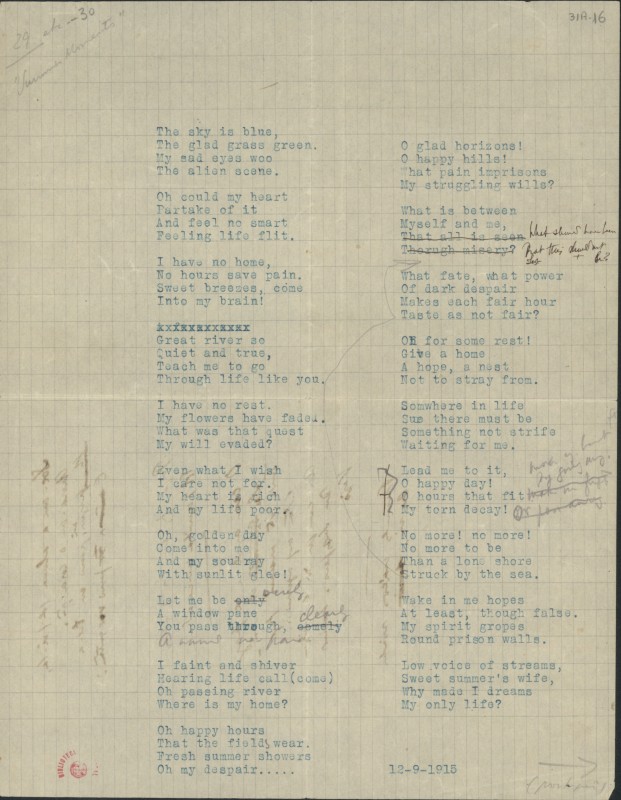 31A-16
29
-30
The sky is blue,
The glad grass green.
My sad eyes woo
The alien scene.
Oh could my heart
Partake of it
And feel no smart
Feeling life flit.
I have no home,
No hours save pain.
Sweet breezes, come
Into my brain!
Great river so
Quiet and true,
Teach me to go
Through life like you.
I have no rest.
My flowers have faded.
What was that quest
My will evaded?
Even what I wish
I care not for.
My heart is rich
And my life poor.
Oh, golden day
Come into me
And my soul ray
With sunlit glee!
Let me be only
A window pane
You pass through, comely
I faint and shiver
Hearing life call(come)
Oh passing river
Where is my home?
Oh happy hours
That the fields wear.
Fresh summer showers
Oh my despair.....
O glad horizons!
O happy hills!
What pain imprisons
My struggling wills?
What is between
Myself and me,
That all is seen
Thorugh misery?
What should have been
But this
What fate, what power
Of dark despair
Makes each fair hour
Taste as not fair?
Oh for some rest!
Give a home
A hope, a nest
Not to stray from.
Somwhere in life
Sure there must be
Something not strife
Waiting for me.
Lead me to it,
O happy day!
O hours that fit
My torn decay!
No more! no more!
No more to be
Than a lone shore
Struck by the sea.
Wake in me hopes
At least, though false.
My spirit gropes
Round prison walls.
Low voice of streams,
Sweet summer's wife,
Why made I dreams
My only life?
12-9-1915